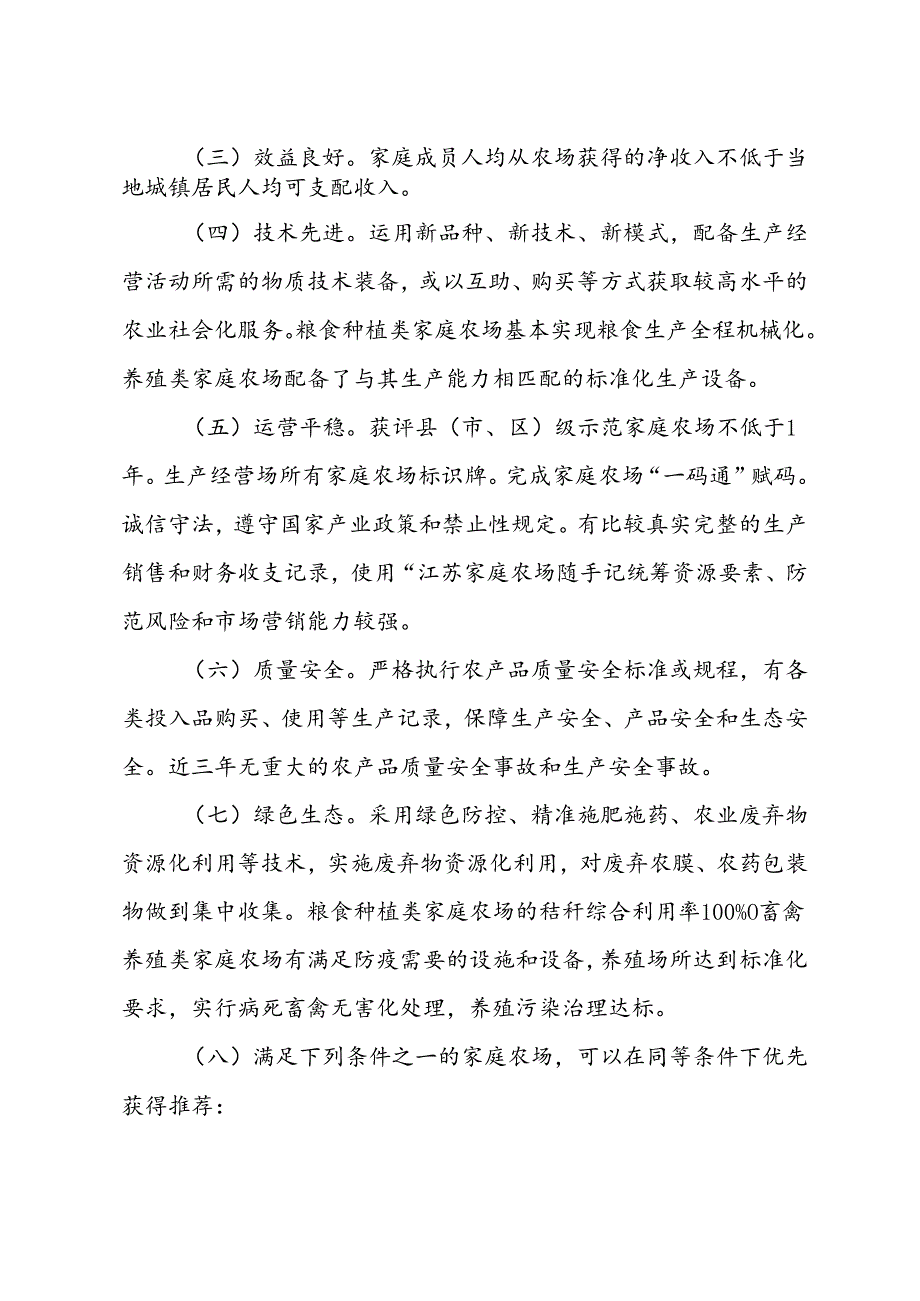 （三）效益良好。家庭成员人均从农场获得的净收入不低于当
地城镇居民人均可支配收入。
（四）技术先进。运用新品种、新技术、新模式，配备生产经
营活动所需的物质技术装备，或以互助、购买等方式获取较高水平的
农业社会化服务。粮食种植类家庭农场基本实现粮食生产全程机械化。
养殖类家庭农场配备了与其生产能力相匹配的标准化生产设备。
（五）运营平稳。获评县（市、区）级示范家庭农场不低于1
年。生产经营场所有家庭农场标识牌。完成家庭农场“一码通”赋码。
诚信守法，遵守国家产业政策和禁止性规定。有比较真实完整的生产
销售和财务收支记录，使用“江苏家庭农场随手记统筹资源要素、防
范风险和市场营销能力较强。
（六）质量安全。严格执行农产品质量安全标准或规程，有各
类投入品购买、使用等生产记录，保障生产安全、产品安全和生态安
全。近三年无重大的农产品质量安全事故和生产安全事故。
（七）绿色生态。采用绿色防控、精准施肥施药、农业废弃物
资源化利用等技术，实施废弃物资源化利用，对废弃农膜、农药包装
物做到集中收集。粮食种植类家庭农场的秸秆综合利用率100%O畜禽
养殖类家庭农场有满足防疫需要的设施和设备，养殖场所达到标准化
要求，实行病死畜禽无害化处理，养殖污染治理达标。
（八）满足下列条件之一的家庭农场，可以在同等条件下优先
获得推荐：